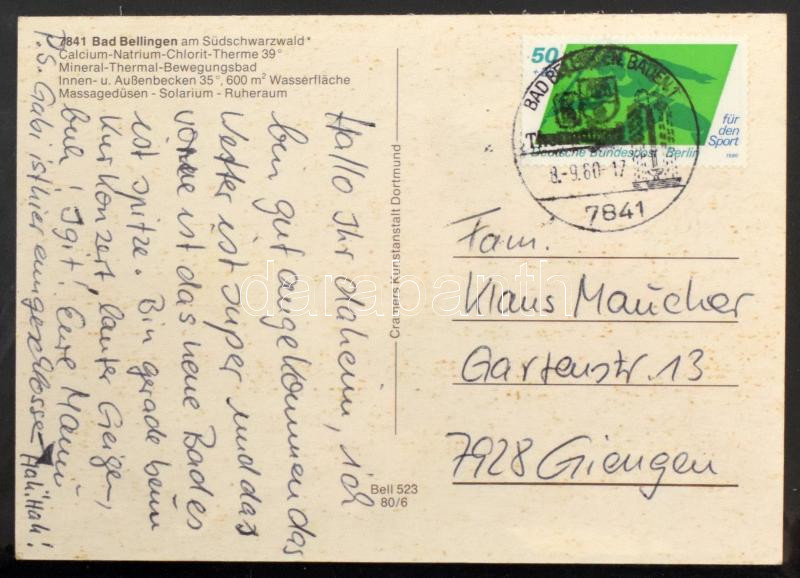 7841 Bad Bellingen am Südschwarzwald*
Calcium-Natrium-Chlorit-Therme 39°
Mineral-Thermal-Bewegungsbad
Innen- u. Außenbecken 35°, 600 m² Wasserfläche
Massagedüsen - Solarium - Ruheraum
Hallo Ihr daheim, ich
bin gut angekommen das
Wetter ist super und das
ist das neue Bades
ist spitze. Bin gerade beim
Kurkonzert, lauter Geigen,
bua! Igit! Eure Mami
P.S. Gabi ist hier eingeschlossen Hali Hali!
Cramers Kunstanstalt Dortmund
Bell 523
80/6
50
für
den
Sport
Deutsche Bundespost Berlin
1980
BAD BELLINGEN, BADEN 1
8.-9.80-17
7841
Fam.
Klaus Maucher
Gartenstr. 13
7928 Giengen
darabanth